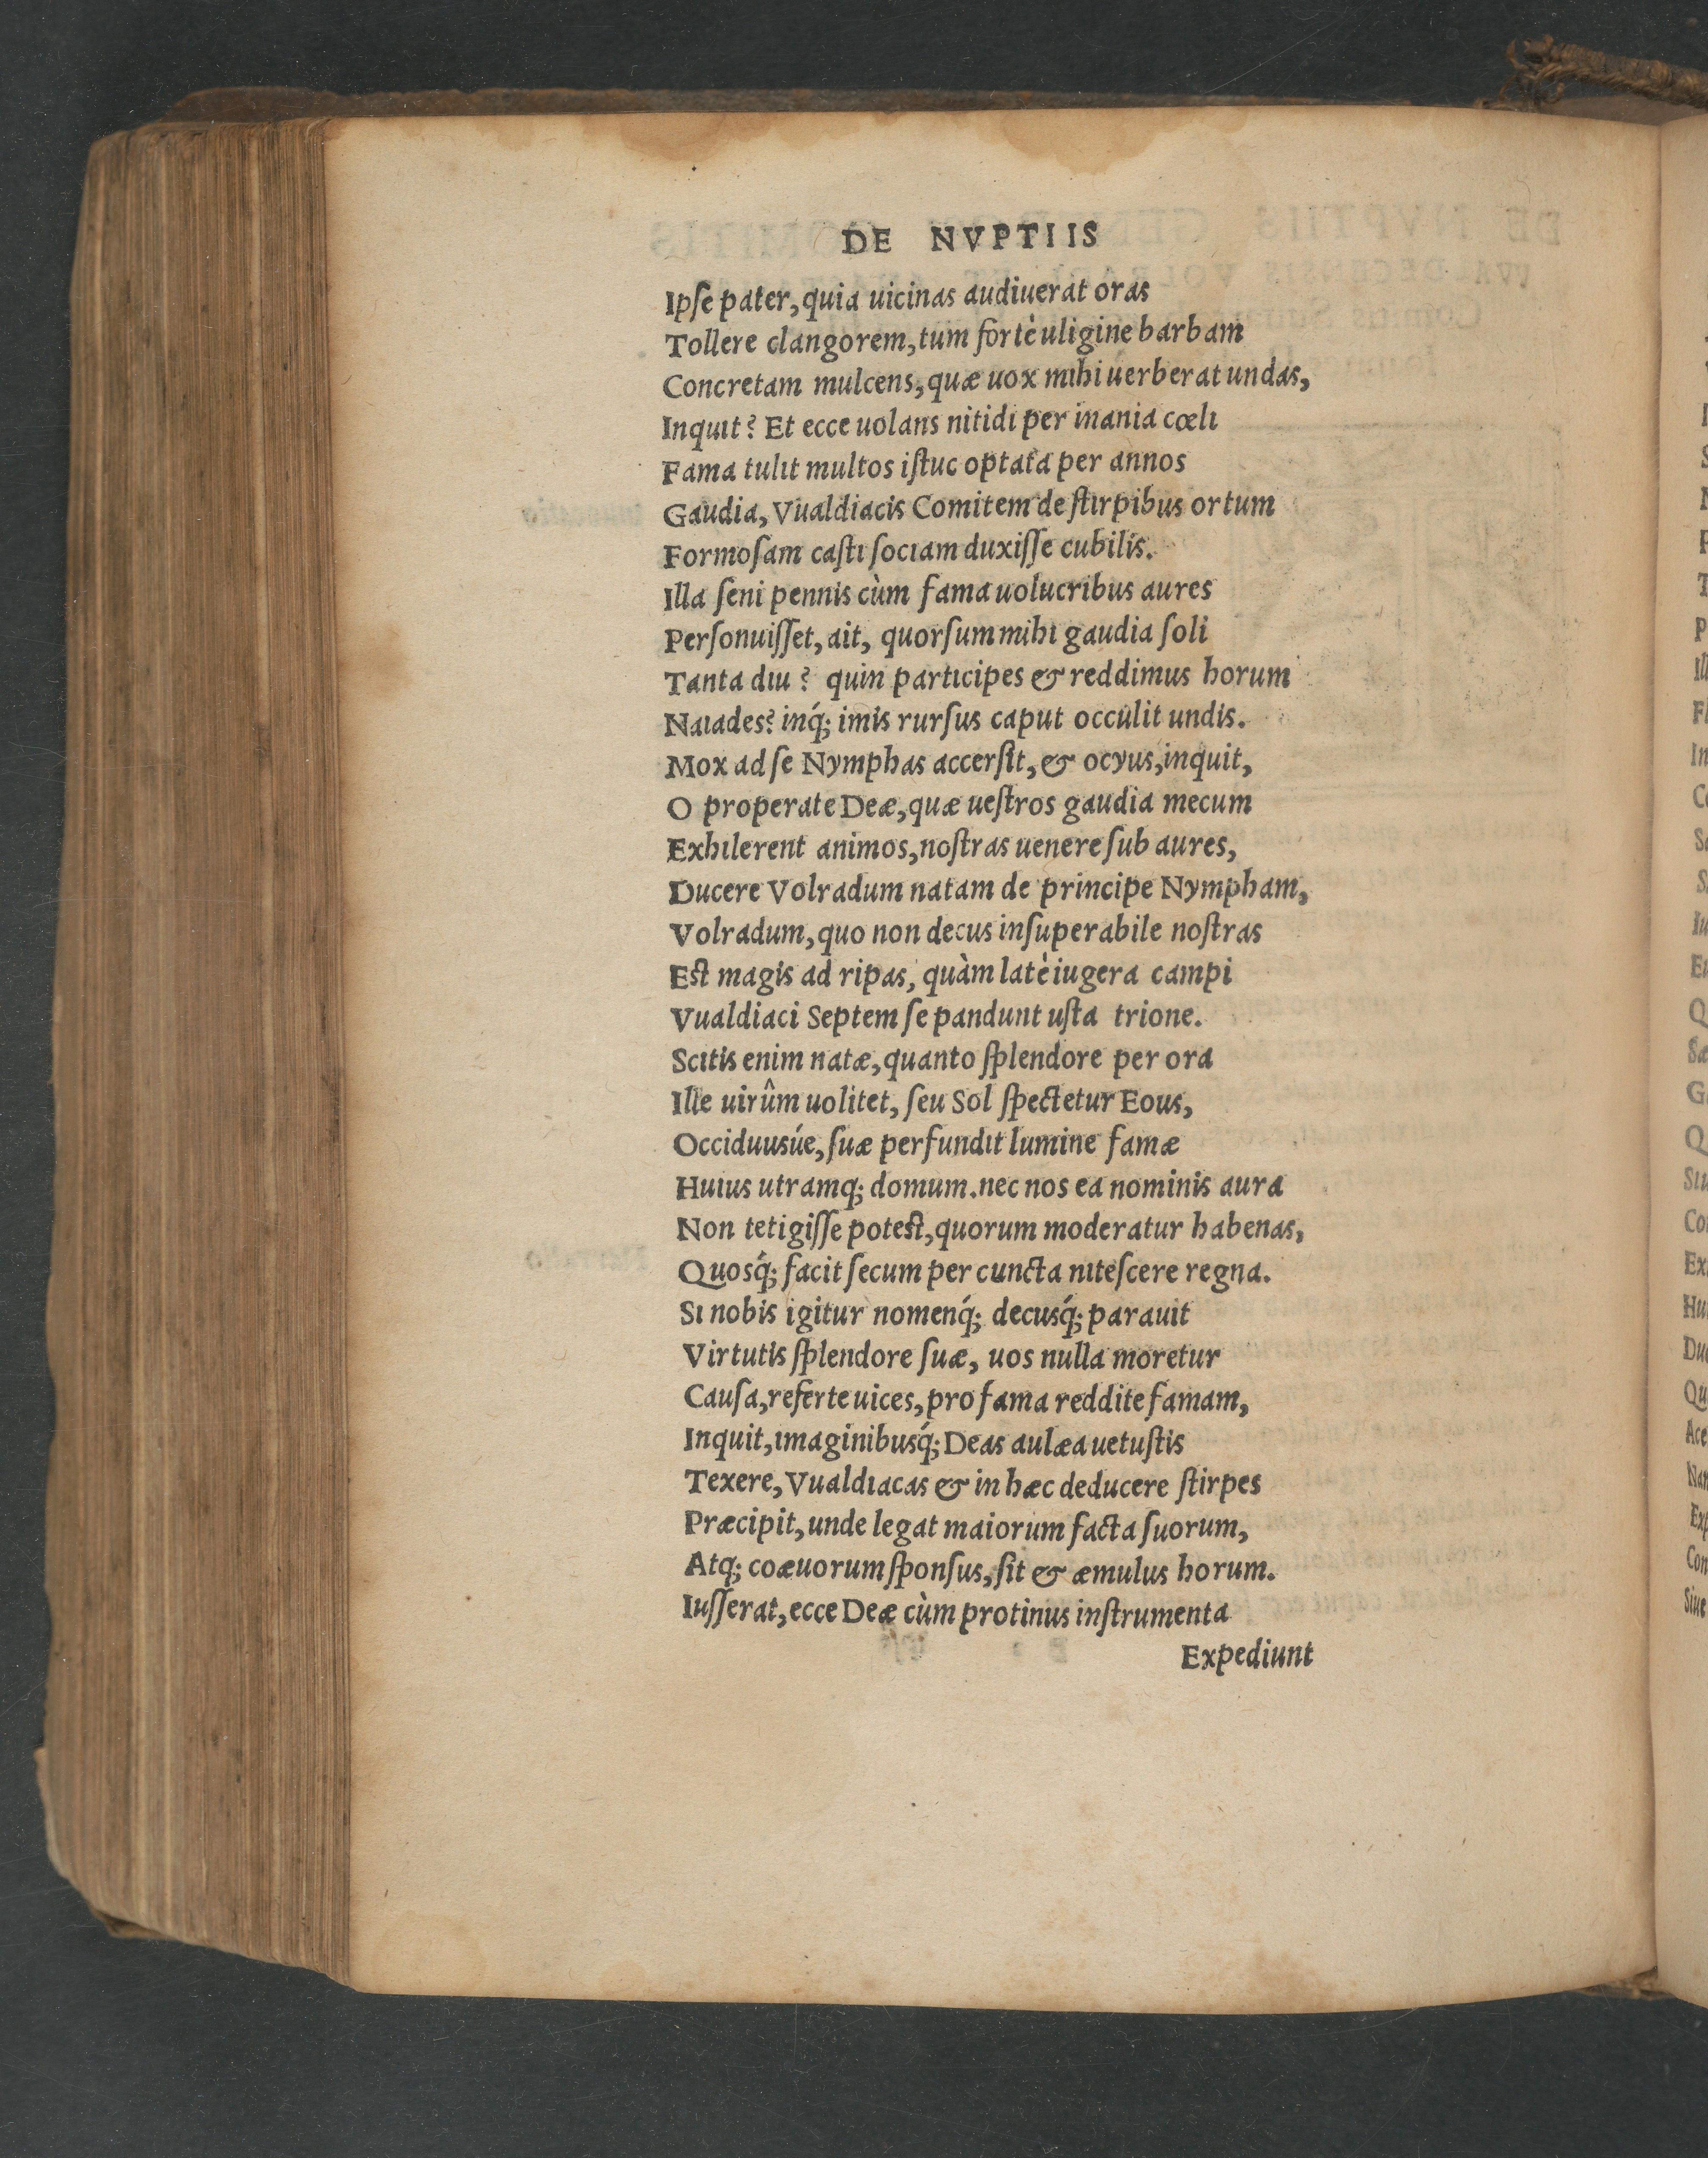 DE NVPTIIS
Ipſe pater, quia uicinas audiuerat oras
Tollere clangorem, tum fortè uligine barbam
Concretam mulcens, quæ uox mihi uerberat undas,
Inquit? Et ecce uolans nitidi per inania cœli
Fama tulit multos iſtuc optata per annos
Gaudia, Vualdiacis Comitem de ſtirpibus ortum
Formoſam caſti ſociam duxiſſe cubilis.
Illa ſeni pennis cùm fama uolucribus aures
Perſonuiſſet, ait, quorſum mihi gaudia ſoli
Tanta diu? quin participes & reddimus horum
Naiades? inq́; imis rurſus caput occulit undis.
Mox ad ſe Nymphas accerſit, & ocyus, inquit,
O properate Deæ, quæ ueſtros gaudia mecum
Exhilerent animos, noſtras uenere ſub aures,
Ducere Volradum natam de principe Nympham,
Volradum, quo non decus inſuperabile noſtras
Eſt magis ad ripas, quàm latè iugera campi
Vualdiaci Septem ſe pandunt uſta trione.
Scitis enim natæ, quanto ſplendore per ora
Ille uirûm uolitet, ſeu Sol ſpectetur Eous,
Occiduusúe, ſuæ perfundit lumine famæ
Huius utramq; domum. nec nos ea nominis aura
Non tetigiſſe poteſt, quorum moderatur habenas,
Quosq́; facit ſecum per cuncta niteſcere regna.
Si nobis igitur nomenq́; decusq́; parauit
Virtutis ſplendore ſuæ, uos nulla moretur
Cauſa, referte uices, pro fama reddite famam,
Inquit, imaginibusq́; Deas aulæa uetuſtis
Texere, Vualdiacas & in hæc deducere ſtirpes
Præcipit, unde legat maiorum facta ſuorum,
Atq; coæuorum ſponſus, ſit & æmulus horum.
Iuſſerat, ecce Deæ cùm protinus inſtrumenta
Expediunt